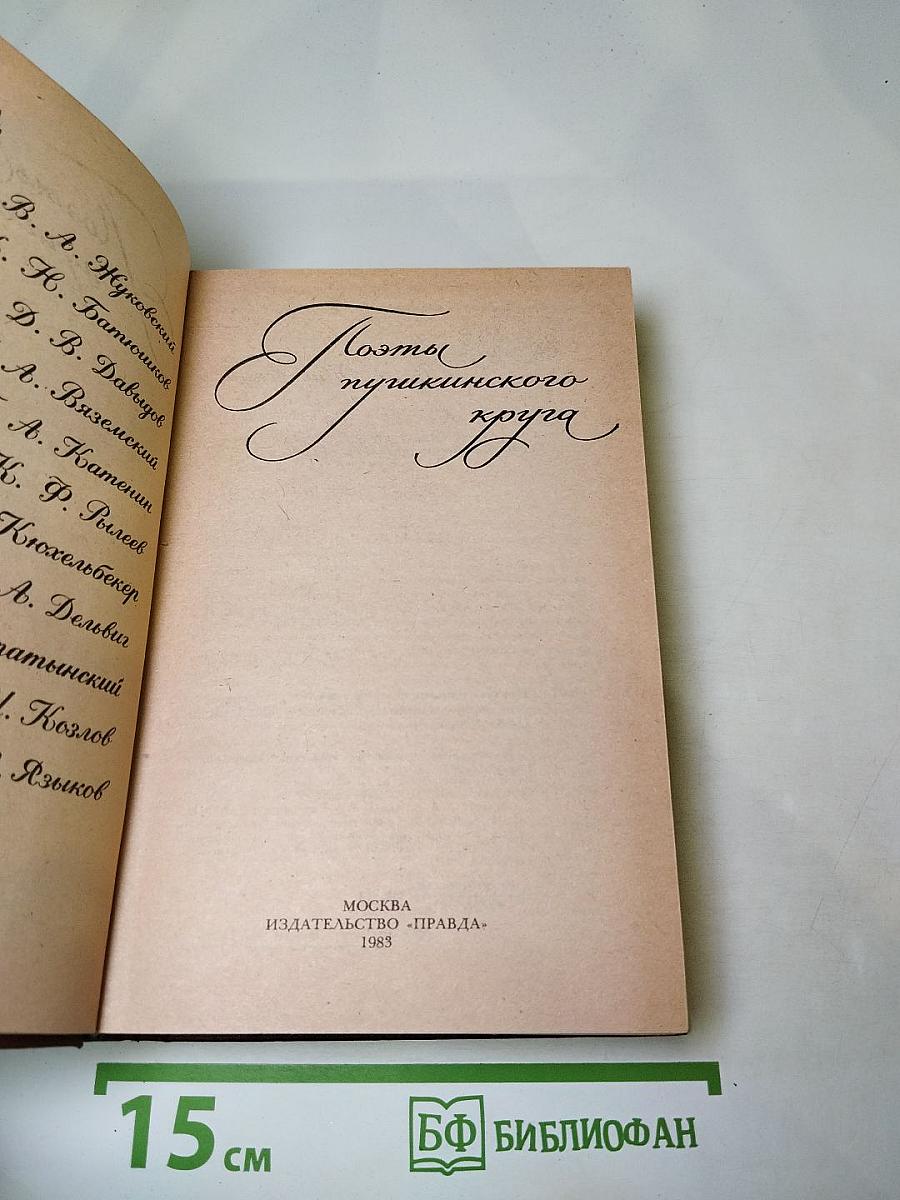 В. А. Жуковский
Н. Батюшков
Д. В. Давыдов
А. Вяземский
А. Катенин
К. Ф. Рылеев
Кюхельбекер
А. Дельвиг
Козлов
Языков
Поэты
пушкинского
круга
МОСКВА
ИЗДАТЕЛЬСТВО «ПРАВДА»
1983
15 см
БФ БИБЛИОФАН